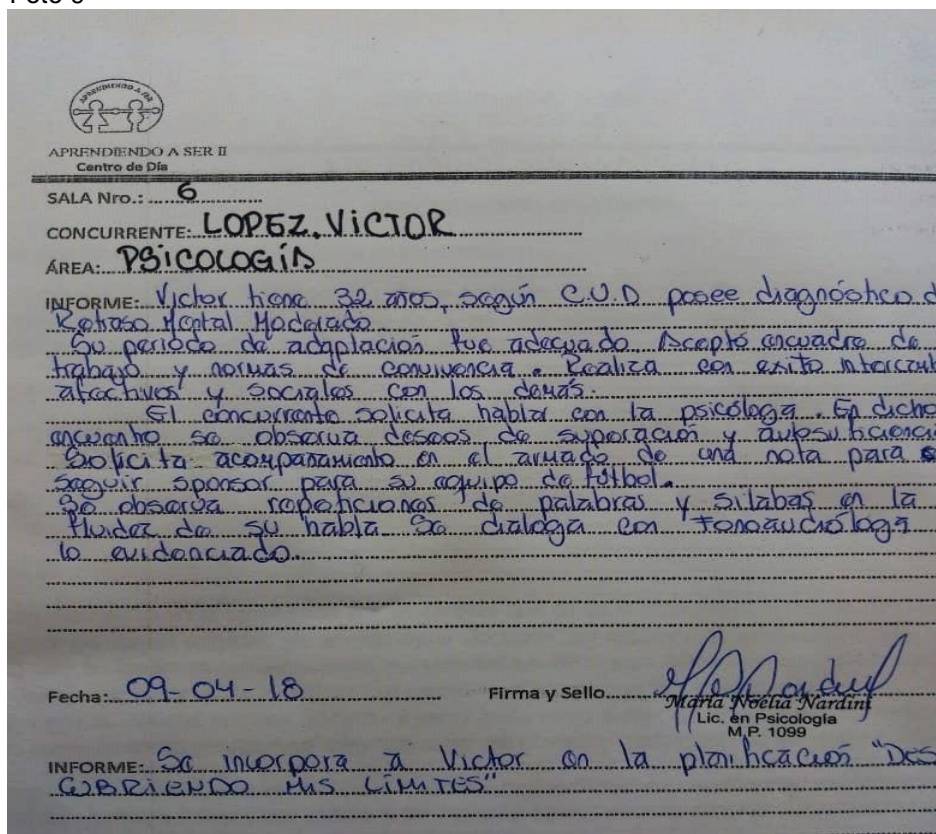 APRENDIENDO A SER
APRENDIENDO A SER II
Centro de Día
SALA Nro.: 6
CONCURRENTE: LOPEZ, VICTOR
ÁREA: PSICOLOGÍA
INFORME: Victor tiene 32 años, según C.U.D posee diagnóstico d
Retraso Mental Moderado
Su período de adaptación fue adecuado Aceptó encuadre de
trabajo y normas de convivencia. Realiza con exito intercamb
afectivos y sociales con los demás.
El concurrente solicita hablar con la psicóloga. En dicho
encuentro se observa deseos de superación y autosuficiencia
Solicita acompañamiento en el armado de una nota para
seguir sponsor para su equipo de fútbol.
Se observa repeticiones de palabras y silabas en la
fluidez de su habla Se dialoga con Fonoaudióloga
lo evidenciado.
Fecha: 09-04-18 Firma y Sello
María Noelia Nardini
Lic. en Psicología
M.P. 1099
INFORME: Se incorpora a Victor en la planificación "DES
CUBRIENDO MIS LÍMITES"